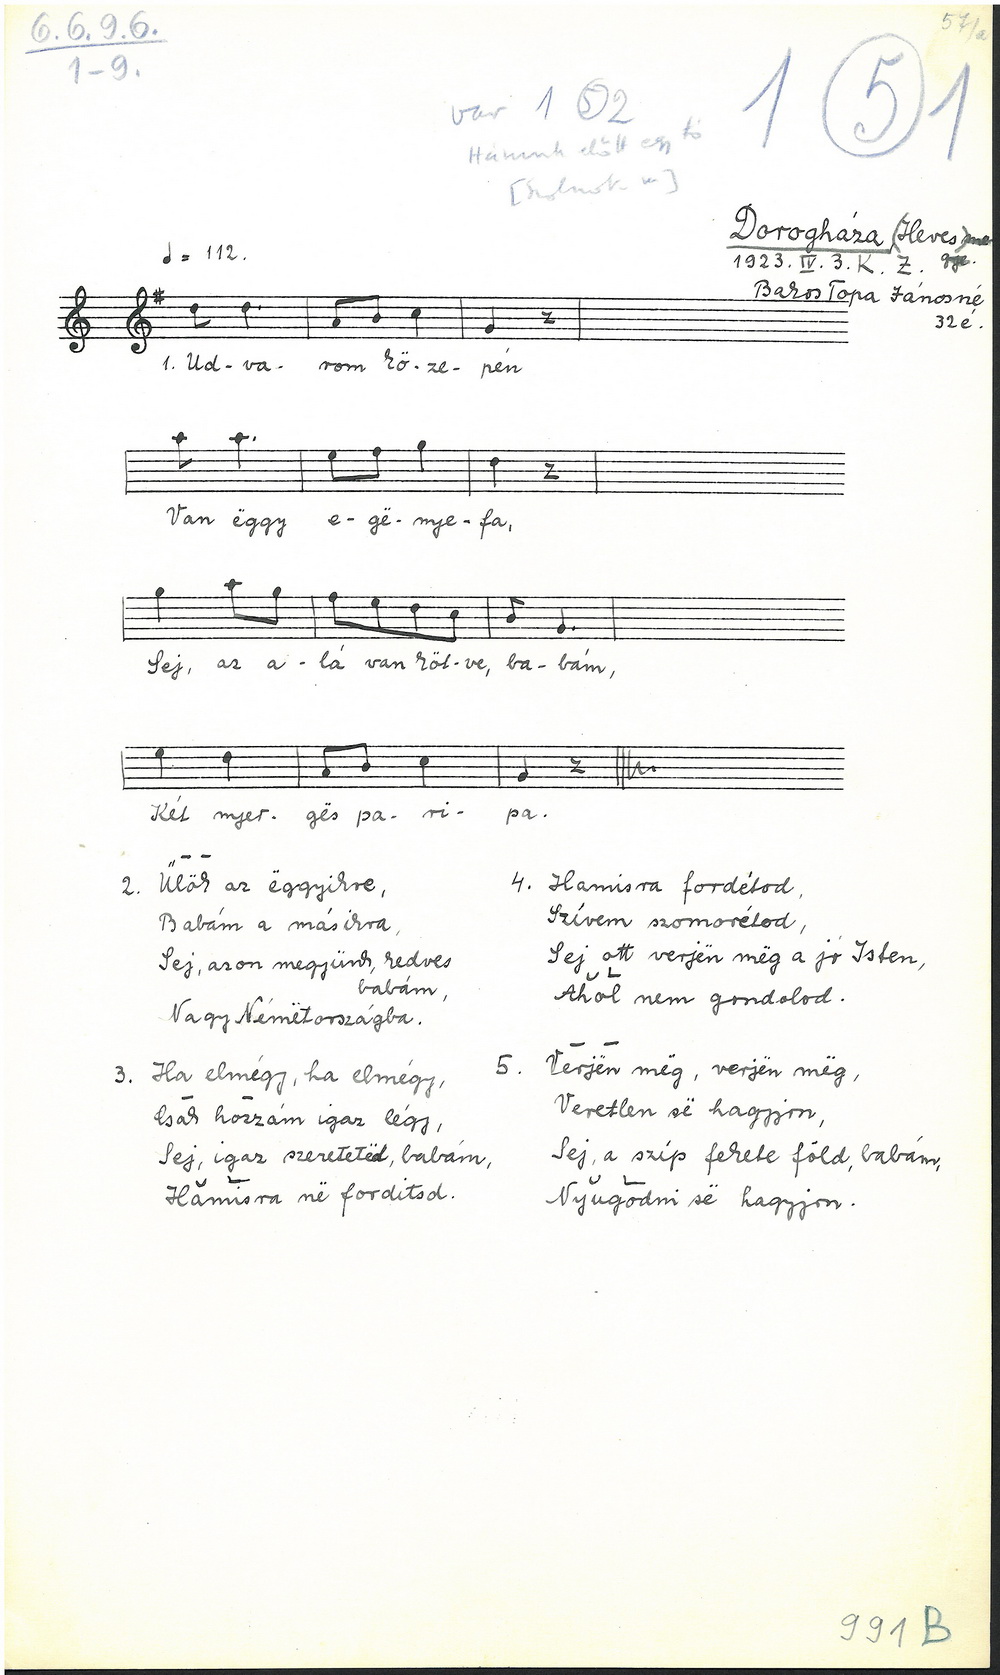 6.6.9.6.
1-9.
57/a
var 1 ⑤2
1 ⑤ 1
előtt egy tó
Dorogháza (Heves) me
gye.
1923. IV. 3. K. Z.
Bakos Topa Jánosné
32 é.
♩ = 112.
1. Ud - va - rom kö - ze - pén
Van ëggy e - gë - nye - fa,
Sej, az a - lá van köt - ve, ba - bám,
Két nyer - gës pa - ri - pa.
2. Űlök az ëggyikre,
Babám a másikra,
Sej, azon megyünk, kedves
babám,
Nagy Németországba.
3. Ha elmégy, ha elmégy,
Csak hozzám igaz légy,
Sej, igaz szeretetëd, babám,
Hamisra në forditsd.
4. Hamisra fordétod,
Szívem szomorétod,
Sej ott verjën mëg a jó Isten,
Ahol nem gondolod.
5. Verjën mëg, verjën mëg,
Veretlen së hagyjon,
Sej, a szíp fekete föld, babám,
Nyugodni së hagyjon.
991 B